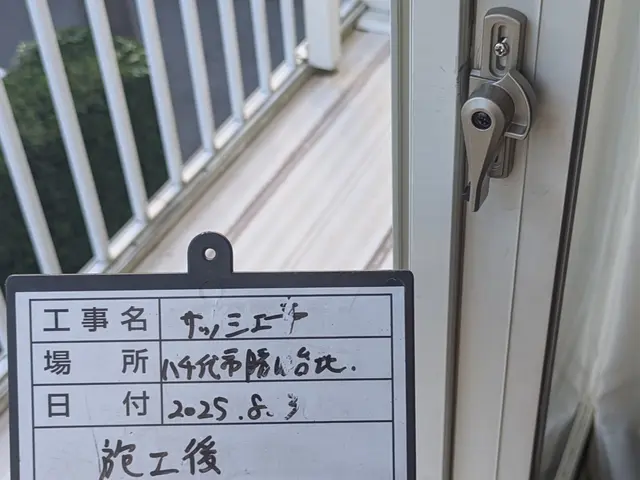 工事名 サッシ工事
場所 八千代市勝田台北.
日付 2025.8.3
施工後